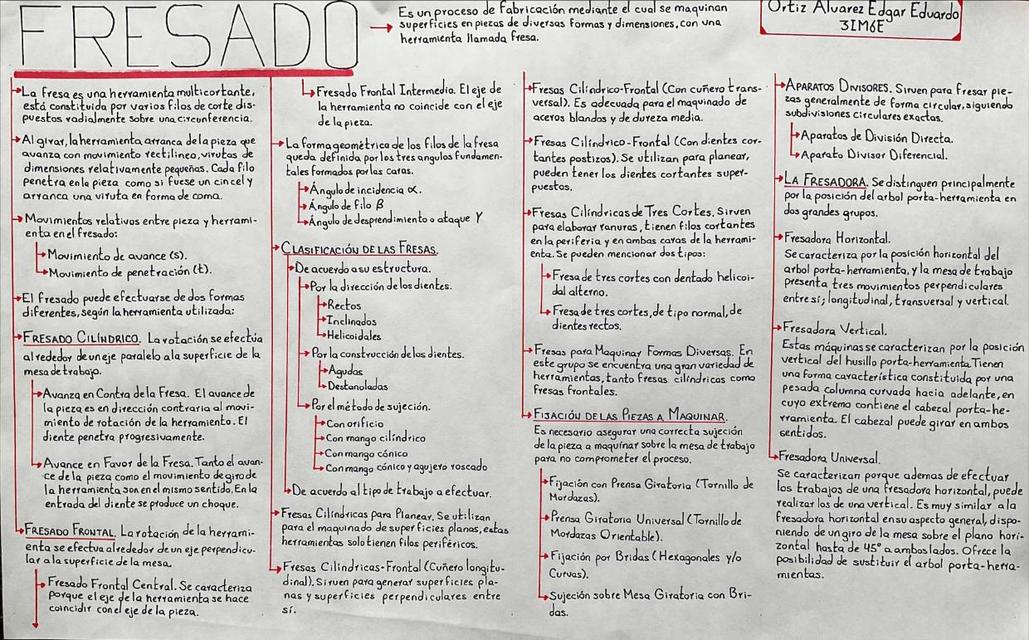 FRESADO
Es un proceso de fabricación mediante el cual se maquinan
superficies en piezas de diversas formas y dimensiones, con una
herramienta llamada fresa.
Ortiz Alvarez Edgar Eduardo
3IM6E
La fresa es una herramienta multicortante,
está constituida por varios filos de corte dis-
puestos radialmente sobre una circunferencia.
Al girar, la herramienta arranca de la pieza que
avanza con movimiento rectilineo, virutas de
dimensiones relativamente pequeñas. Cada filo
penetra en la pieza como si fuese un cincel y
arranca una viruta en forma de coma.
Movimientos relativos entre pieza y herrami-
enta en el fresado:
Movimiento de avance (s).
Movimiento de penetración (t).
El fresado puede efectuarse de dos formas
diferentes, según la herramienta utilizada:
FRESADO CILÍNDRICO. La rotación se efectúa
alrededor de un eje paralelo a la superficie de la
mesa de trabajo.
Avanza en Contra de la Fresa. El avance de
la pieza es en dirección contraria al movi-
miento de rotación de la herramiento. El
diente penetra progresivamente.
Avance en Favor de la Fresa. Tanto el avan-
ce de la pieza como el movimiento de giro de
la herramienta son en el mismo sentido. En la
entrada del diente se produce un choque.
FRESADO FRONTAL. La rotación de la herrami-
enta se efectua alrededor de un eje perpendicu-
lar a la superficie de la mesa.
Fresado Frontal Central. Se caracteriza
porque el eje de la herramienta se hace
coincidir con el eje de la pieza.
Fresado Frontal Intermedia. El eje de
la herramienta no coincide con el eje
de la pieza.
La forma geométrica de los filos de la fresa
queda definida por los tres angulos fundamen-
tales formados por las caras.
Ángulo de incidencia α.
Ángulo de filo β
Ángulo de desprendimiento o ataque γ
CLASIFICACIÓN DE LAS FRESAS.
De acuerdo a su estructura.
Por la dirección de los dientes.
Rectos
Inclinados
Helicoidales
Por la construcción de los dientes.
Agudas
Destanoladas
Por el método de sujeción.
Con orificio
Con mango cilíndrico
Con mango cónico
Con mango cónico y agujero roscado
De acuerdo al tipo de trabajo a efectuar.
Fresas Cilíndricas para Planear. Se utilizan
para el maquinado de superficies planas, estas
herramientas solo tienen filos periféricos.
Fresas Cilíndricas-Frontal (Cuñero longitu-
dinal). Sirven para generar superficies pla-
nas y superficies perpendiculares entre
sí.
Fresas Cilíndrico-Frontal (Con cuñero trans-
versal). Es adecuada para el maquinado de
aceros blandos y de dureza media.
Fresas Cilíndrico-Frontal (Con dientes cor-
tantes postizos). Se utilizan para planear,
pueden tener los dientes cortantes super-
puestos.
Fresas Cilíndricas de Tres Cortes. Sirven
para elaborar ranuras, tienen filos cortantes
en la periferia y en ambas caras de la herrami-
enta. Se pueden mencionar dos tipos:
Fresa de tres cortes con dentado helicoi-
dal alterno.
Fresa de tres cortes, de tipo normal, de
dientes rectos.
Fresas para Maquinar Formas Diversas. En
este grupo se encuentra una gran variedad de
herramientas, tanto fresas cilíndricas como
fresas frontales.
FIJACIÓN DE LAS PIEZAS A MAQUINAR.
Es necesario asegurar una correcta sujeción
de la pieza a maquinar sobre la mesa de trabajo
para no comprometer el proceso.
Fijación con Prensa Giratoria (Tornillo de
Mordazas).
Prensa Giratoria Universal (Tornillo de
Mordazas Orientable).
Fijación por Bridas (Hexagonales y/o
Curvas).
Sujeción sobre Mesa Giratoria con Bri-
das.
APARATOS DIVISORES. Sirven para fresar pie-
zas generalmente de forma circular, siguiendo
subdivisiones circulares exactas.
Aparatos de División Directa.
Aparato Divisor Diferencial.
LA FRESADORA. Se distinguen principalmente
por la posición del arbol porta-herramienta en
dos grandes grupos.
Fresadora Horizontal.
Se caracteriza por la posición horizontal del
arbol porta-herramienta, y la mesa de trabajo
presenta tres movimientos perpendiculares
entre sí; longitudinal, transversal y vertical.
Fresadora Vertical.
Estas máquinas se caracterizan por la posición
vertical del husillo porta-herramienta. Tienen
una forma característica constituida por una
pesada columna curvada hacia adelante, en
cuyo extremo contiene el cabezal porta-he-
rramienta. El cabezal puede girar en ambos
sentidos.
Fresadora Universal.
Se caracterizan porque ademas de efectuar
los trabajos de una fresadora horizontal, puede
realizar los de una vertical. Es muy similar a la
fresadora horizontal en su aspecto general, dispo-
niendo de un giro de la mesa sobre el plano hori-
zontal hasta de 45° a ambos lados. Ofrece la
posibilidad de sustituir el arbol porta-herra-
mientas.